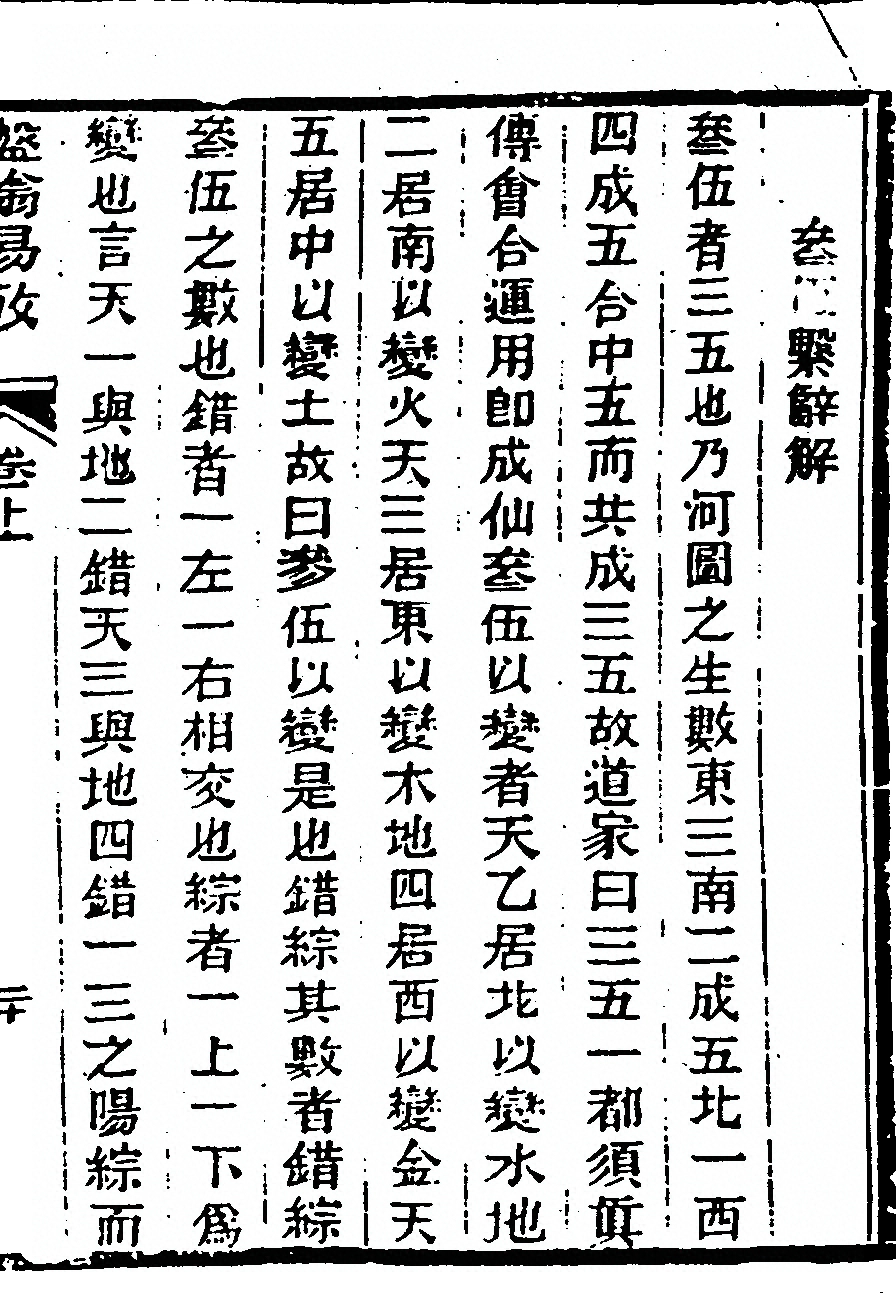 叅伍繫辭解
叅伍者三五也乃河圖之生數東三南二成五北一西
四成五合中五而共成三五故道家曰三五一都須眞
傳會合運用即成仙叅伍以變者天乙居北以變水地
二居南以變火天三居東以變木地四居西以變金天
五居中以變土故曰參伍以變是也錯綜其數者錯綜
叅伍之數也錯者一左一右相交也綜者一上一下爲
變也言天一與地二錯天三與地四錯一三之陽綜而
盤翁易攷 卷上 二十